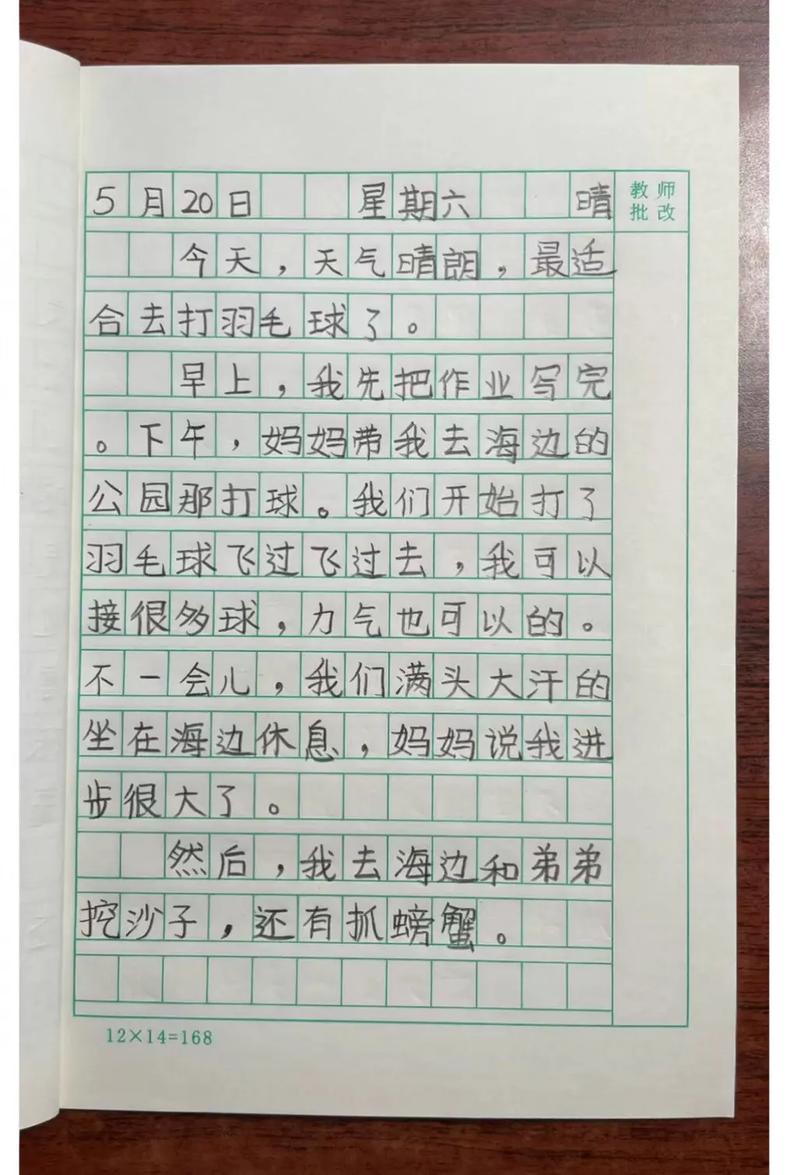 5月20日 星期六 晴
教师
批改
今天，天气晴朗，最适
合去打羽毛球了。
早上，我先把作业写完
。下午，妈妈带我去海边的
公园那打球。我们开始打了
羽毛球飞过飞过去，我可以
接很多球，力气也可以的。
不一会儿，我们满头大汗的
坐在海边休息，妈妈说我进
步很大了。
然后，我去海边和弟弟
挖沙子，还有抓螃蟹。
12×14=168